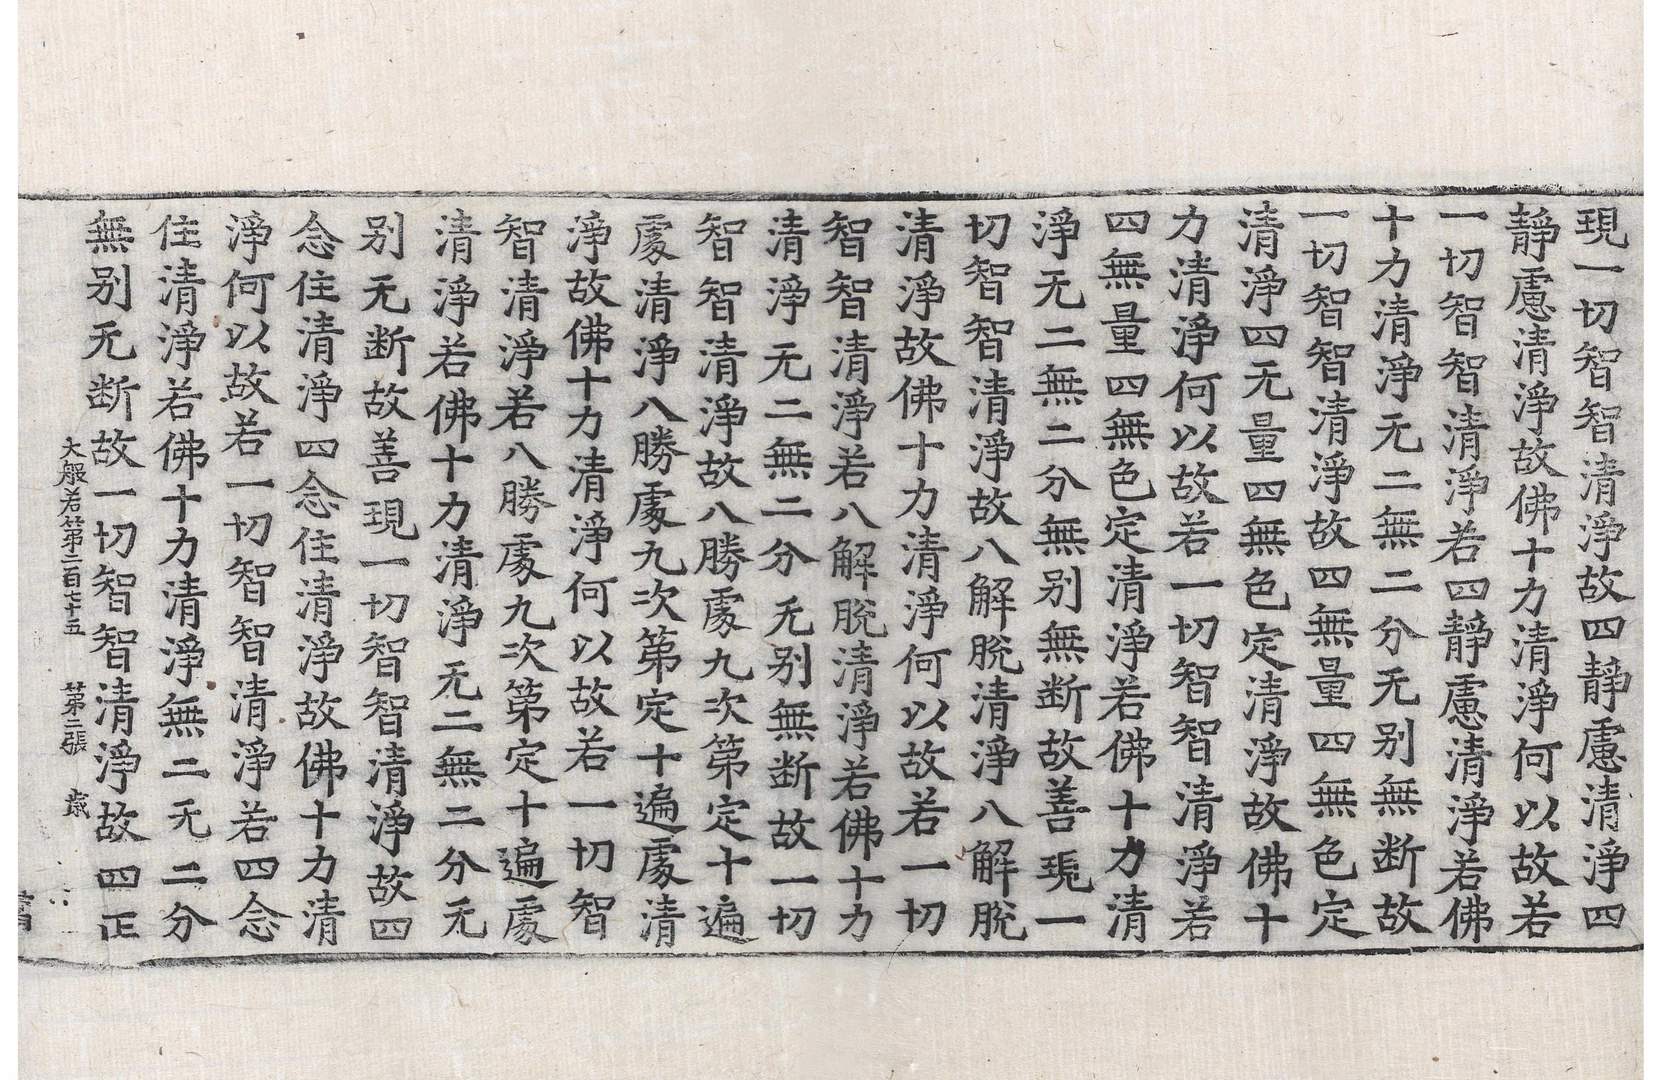 現一切智智清淨故四靜慮清淨四
靜慮清淨故佛十力清淨何以故若
一切智智清淨若四靜慮清淨若佛
十力清淨无二無二分无别無断故
一切智智清淨故四無量四無色定
清淨四无量四無色定清淨故佛十
力清淨何以故若一切智智清淨若
四無量四無色定清淨若佛十力清
淨无二無二分無别無断故善現一
切智智清淨故八解脫清淨八解脫
清淨故佛十力清淨何以故若一切
智智清淨若八解脫清淨若佛十力
清淨无二無二分无别無断故一切
智智清淨故八勝處九次第定十遍
處清淨八勝處九次第定十遍處清
淨故佛十力清淨何以故若一切智
智清淨若八勝處九次第定十遍處
清淨若佛十力清淨无二無二分无
别无断故善現一切智智清淨故四
念住清淨四念住清淨故佛十力清
淨何以故若一切智智清淨若四念
住清淨若佛十力清淨無二无二分
無别无断故一切智智清淨故四正
大般若第二百七十五 第二張 歲